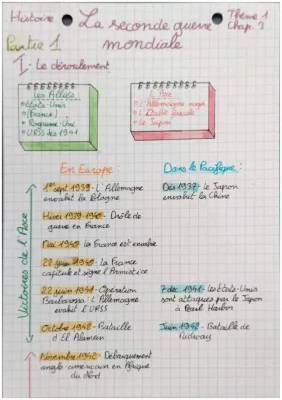 Histoire
La seconde guerre
Thème 1
Chap. 3
Partie 1
mondiale
I - Le déroulement
Les Alliés
• Etats-Unis
• (France)
• Royaume-Uni
• URSS dès 1941
L'Axe
• L'Allemagne nazie
• L'Italie fasciste
• Le Japon
En Europe
Dans le Pacifique :
Victoires de l'Axe
1er sept 1939 - L'Allemagne
envahit la Pologne
Dès 1937 - le Japon
envahit la Chine
Hiver 1939-1940 - Drôle de
guerre en France
Mai 1940 - la France est envahie
22 juin 1940 - la France
capitule et signe l'Armistice
22 juin 1941 - Opération
Barbarossa : L'Allemagne
envahit l'URSS
7 dec 1941 - les Etats-Unis
sont attaqués par le Japon
à Pearl Harbor
Octobre 1942 - Bataille
d'El Alamein
Juin 1942 - Bataille de
Midway
Novembre 1942 - Débarquement
anglo-americain en Afrique
du Nord